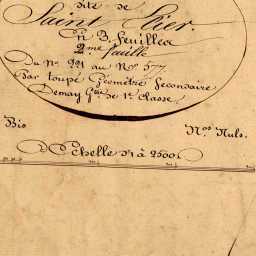 dite de
Saint Hier.
en 3. feuilles
2.me feuille
Du No. 221 au No. 577
Par toupé Géomètre Secondaire
Demay G.tre de 1e Classe.
Bis
Nos. Nuls.
Echelle d 1 à 2500